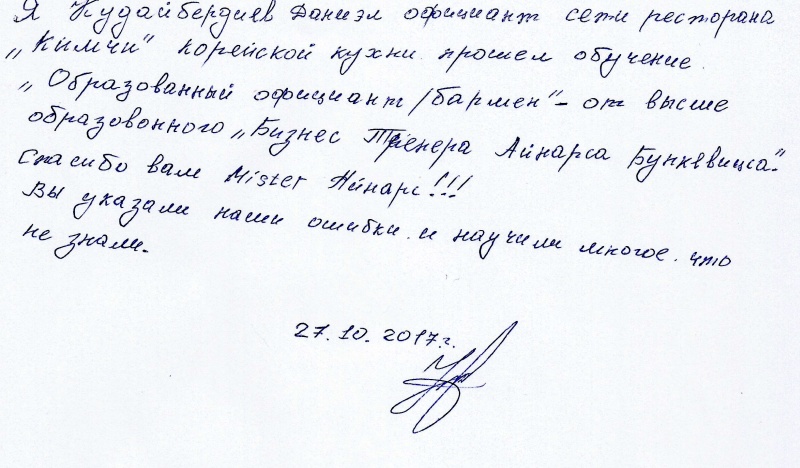 Я Кудайбердиев Даниэл официант сети ресторана
„Кимчи" корейской кухни прошел обучение.
„Образованный официант/бармен"- от высше
образовонного „Бизнес Тренера Айнарса Бункявица."
Спасибо вам Mister Айнарс!!!
Вы указали наши ошибки. и научили многое. что
не знали.
27.10.2017г.